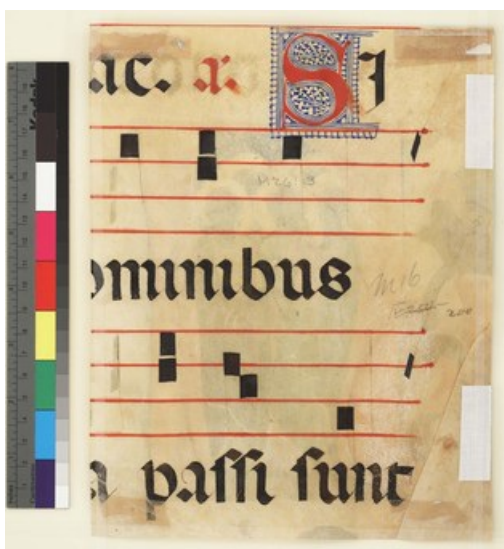 ac. r. SI
ominibus
m16
200
a paſſi ſunt